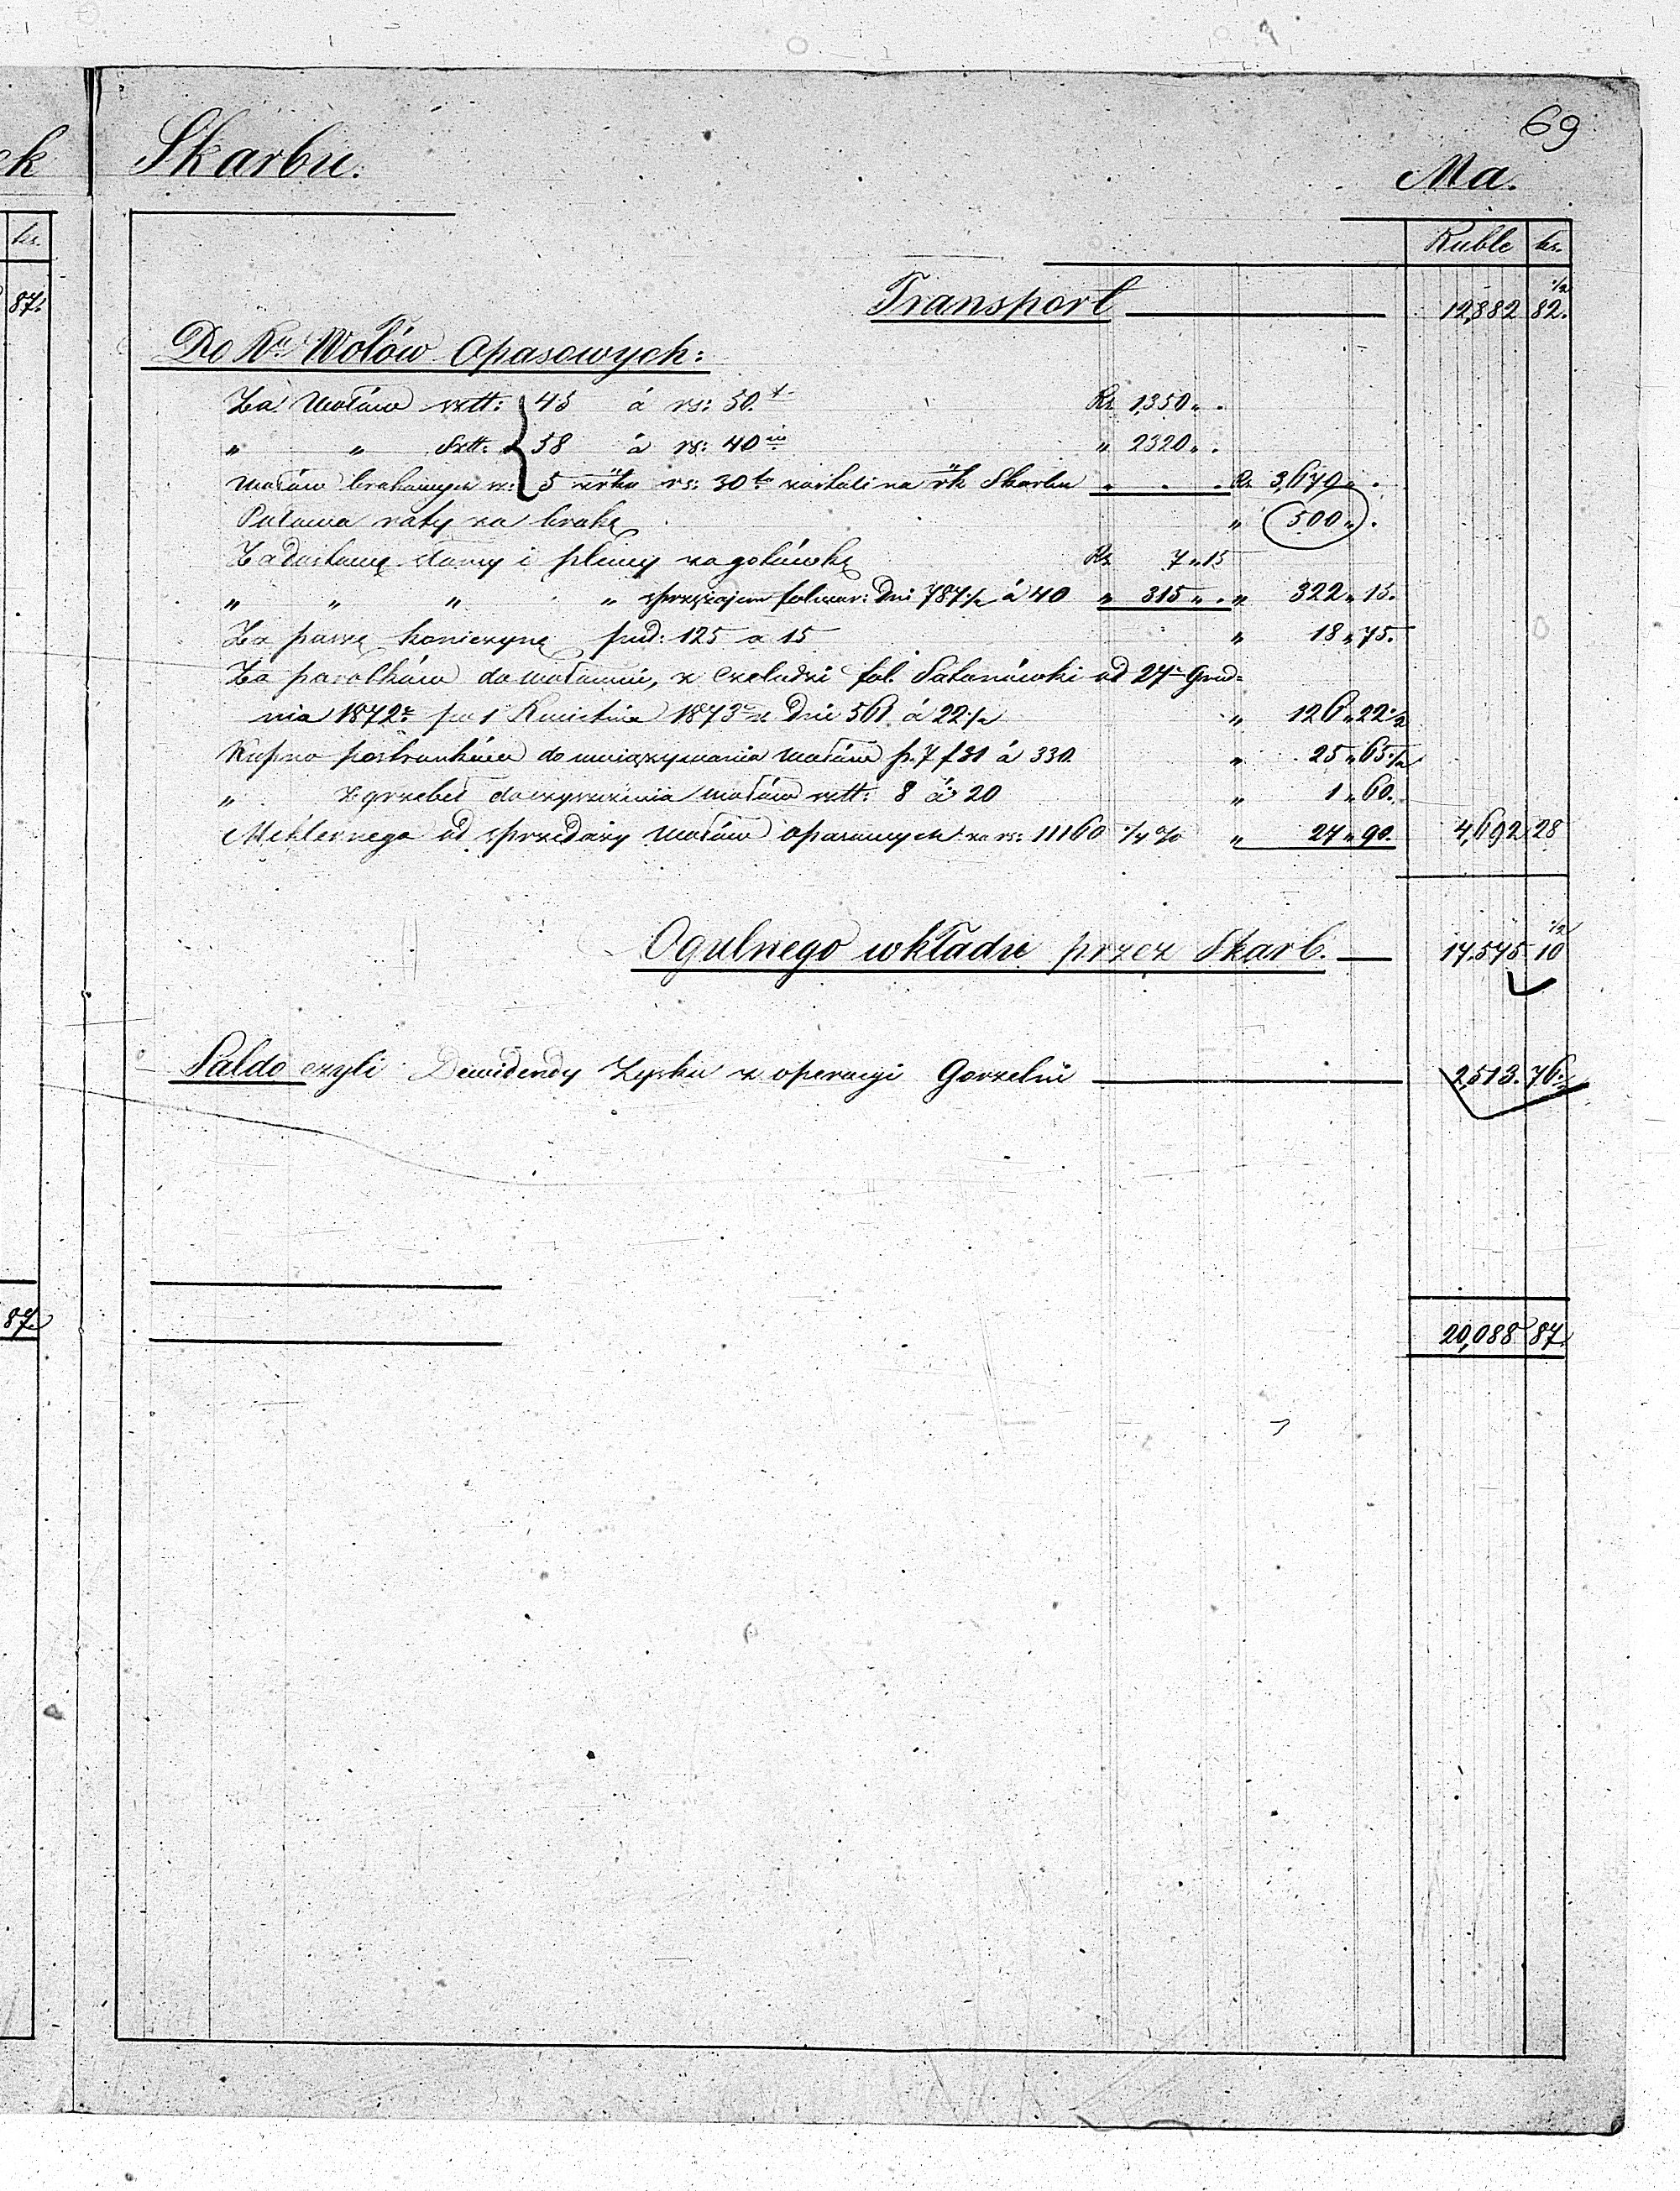 69
ck Skarbu. Ma.
kr. Ruble kr.
87. Transport 12,882 82.½
Do Ru Wołów Opasowych:
Za Wołów sztt: 45 á rs: 30.t Rs 1,350 „ .
„ „ Sztt: 58 á rs: 40 „ 2320 „ .
Wołów brakownych 5 rs: 30 na rk Skarbu „ . . Rs 3,670 „ .
Połowa raty za brahę „ 500 „ .
Za dostawę słomy i plewy za gotówkę Rs 7 „ 15
„ „ „ „ sprzężajem folwar: Dni 787½ á 40 „ 315 „ . „ 322 „ 15.
Za paszę koniczynę pud: 125 a 15 „ 18 „ 75.
Za parobków do wołowni, z czeladzi fol. Satanówki od 27 Grud=
nia 1872 po 1 Kwietnia 1873 r Dni 561 á 22½ „ 126 „ 22½
Kupno postronków do uwiązywania wołów p. 7 f 31 á 330. „ 25 „ 65½
„ zgrzebeł do czyszczenia wołów sztt: 8 á 20 „ 1 „ 60.
Meklernego od sprzedaży wołów opasowych za rs: 11160 ¼ % „ 27 „ 90. 4,692 28
Ogulnego wkładu przez Skarb. 17.575 10½
Saldo czyli Dewidendy Zysku z operacyi Gorzelni 2,513. 76½
87½ 20,088 87.